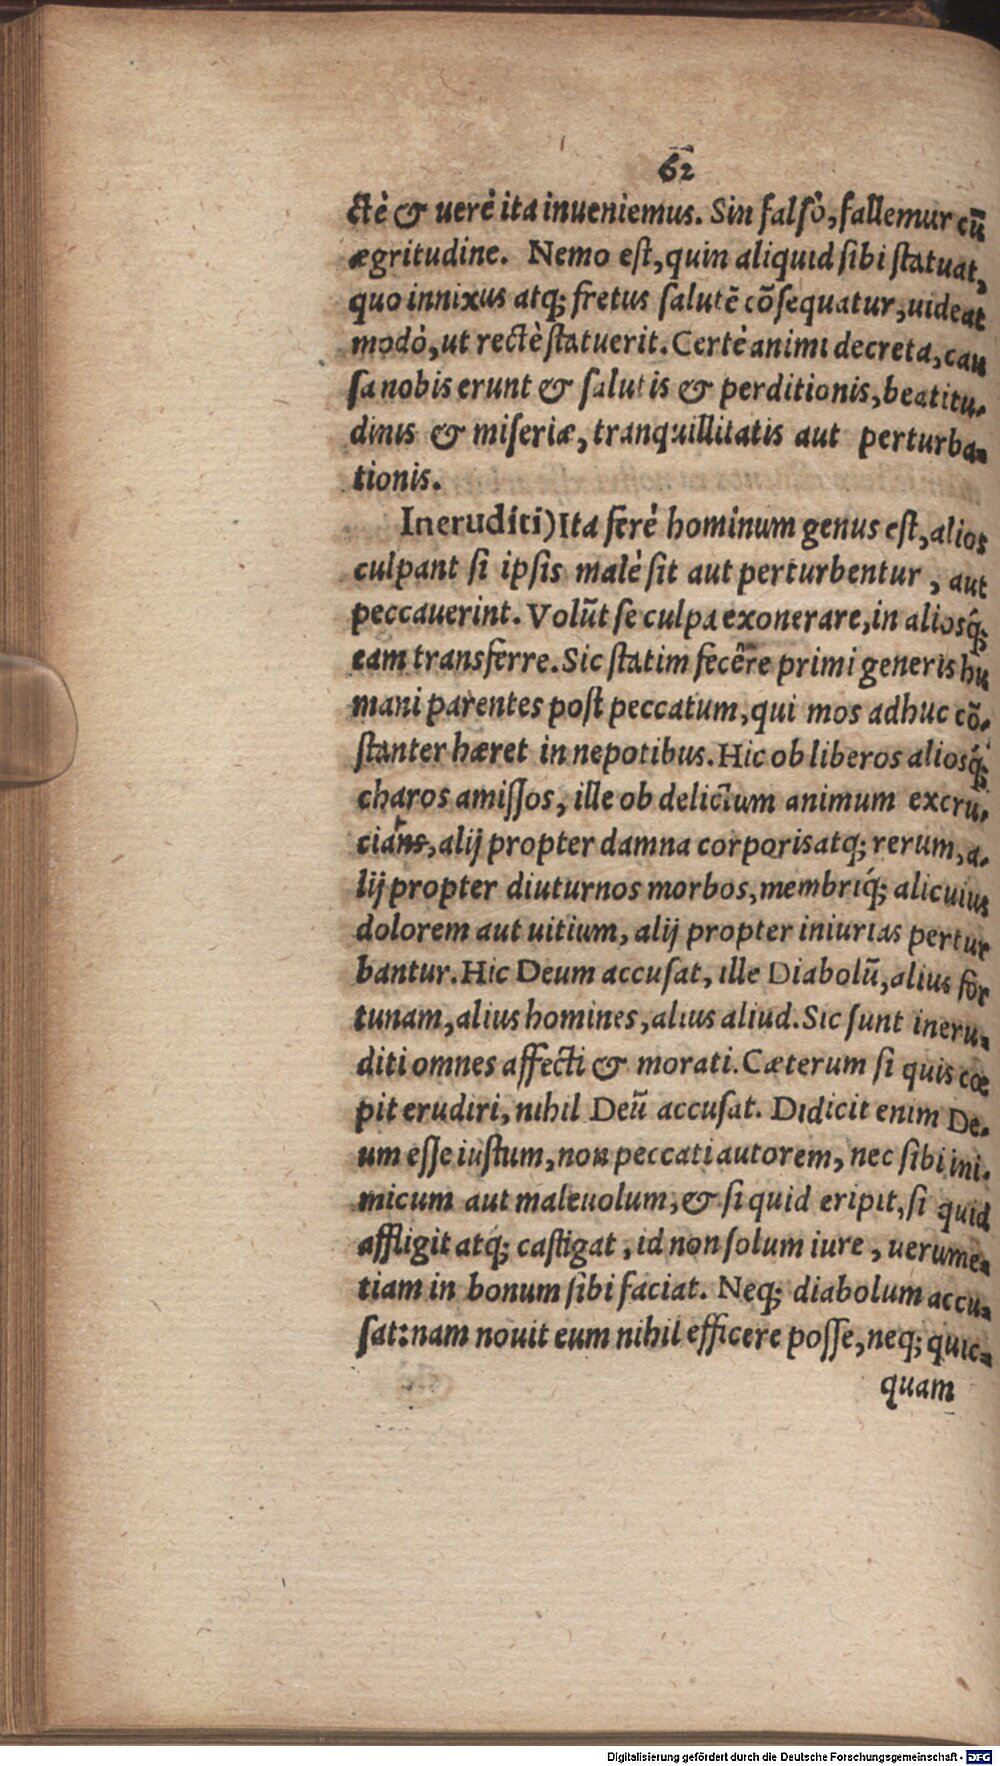 62
ctè & uerè ita inueniemus. Sin falsò, fallemur cū
ægritudine. Nemo est, quin aliquid sibi statuat,
quo innixus atq; fretus salutē cōsequatur, uideat
modò, ut rectè statuerit. Certè animi decreta, cau
sa nobis erunt & salutis & perditionis, beatitu-
dinis & miseriæ, tranquillitatis aut perturba-
tionis.
Ineruditi) Ita ferè hominum genus est, alios
culpant si ipsis malè sit aut perturbentur, aut
peccauerint. Volūt se culpa exonerare, in aliosq́;
eam transferre. Sic statim fecêre primi generis hu
mani parentes post peccatum, qui mos adhuc cō-
stanter hæret in nepotibus. Hic ob liberos aliosq́;
charos amissos, ille ob delictum animum excru-
cians, alij propter damna corporis atq; rerum, a-
lij propter diuturnos morbos, membriq́; alicuius
dolorem aut uitium, alij propter iniurias pertur
bantur. Hic Deum accusat, ille Diabolū, alius for
tunam, alius homines, alius aliud. Sic sunt ineru-
diti omnes affecti & morati. Cæterum si quis cœ
pit erudiri, nihil Deū accusat. Didicit enim De-
um esse iustum, non peccati autorem, nec sibi ini-
micum aut maleuolum, & si quid eripit, si quid
affligit atq́; castigat, id non solum iure, uerume-
tiam in bonum sibi faciat. Neq; diabolum accu-
sat: nam nouit eum nihil efficere posse, neq; quic-
quam
Digitalisierung gefördert durch die Deutsche Forschungsgemeinschaft - DFG